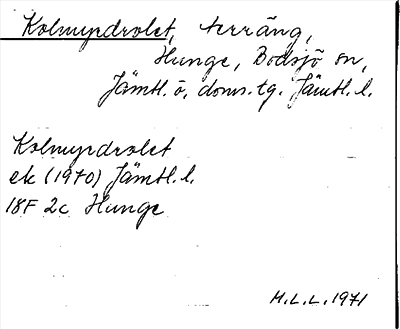 Kolmyrdrolet, terräng,
Hunge, Bodsjö sn,
Jämtl. ö. doms.tg. Jämtl. l.
Kolmyrdrolet
ek (1970) Jämtl. l.
18F 2c Hunge
H.L.L. 1971